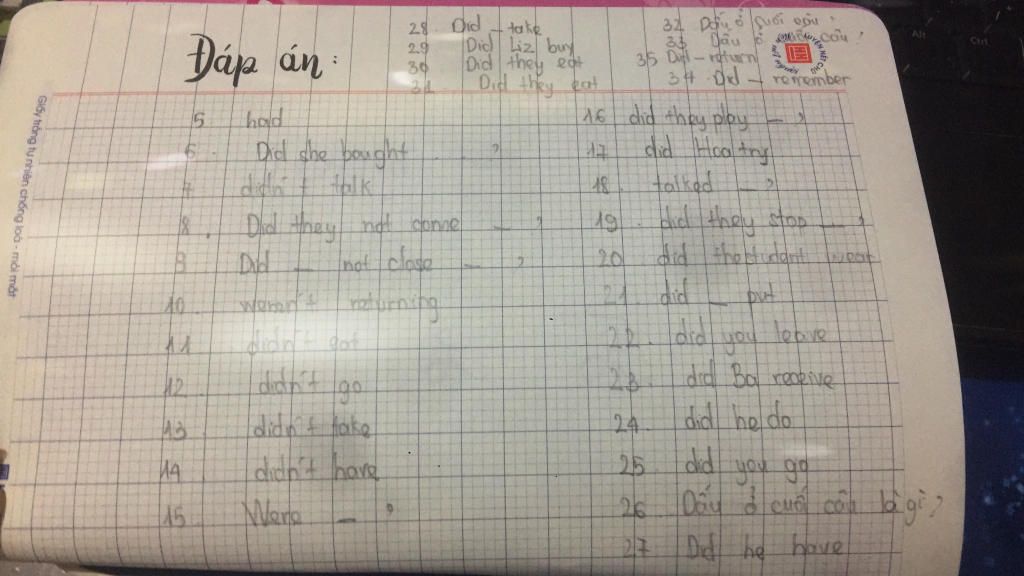 Đáp án:
28 Did – take
29 Did Liz buy
30 Did they eat
31 Did they eat
32 Dấu ở cuối câu?
33 Dấu ở câu?
35 Did – return
34 Did – remember
5 had
6. Did she bought ?
7 didn't talk
8. Did they not come – ?
9 Did – not close – ?
10 weren't returning
11 didn't got
12 didn't go
13 didn't take
14 didn't have
15 Were – ?
16 did they play – ?
17 did Hoa try
18 talked – ?
19. did they stop – ?
20 did the student wear
21 did – put
22. did you leave
23. did Ba receive
24. did he do
25. did you go
26. Dấu ở cuối câu là gì?
27 Did he have
Giấy trắng tự nhiên chống loá - mỏi mắt
Alt
Ctrl